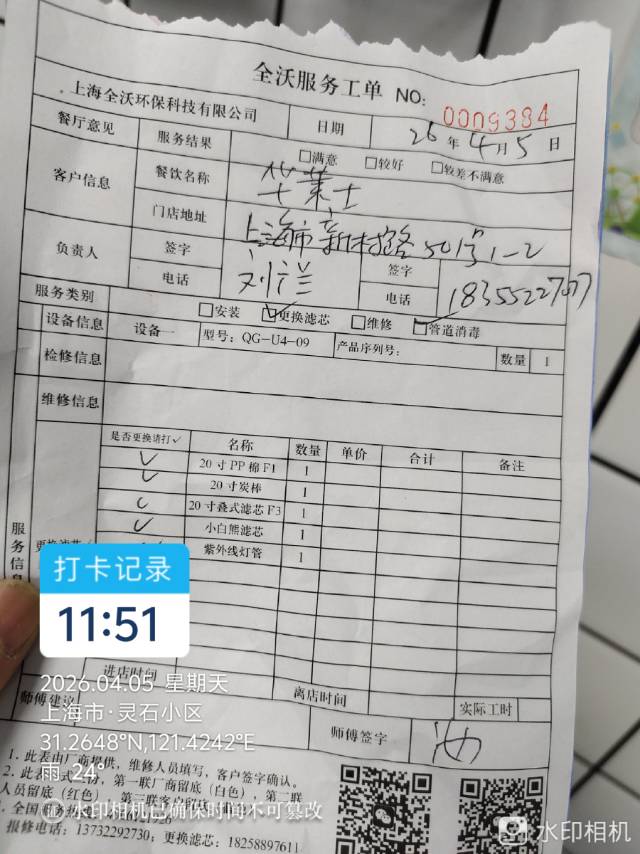 全沃服务工单 NO: 0009384
上海全沃环保科技有限公司 日期 26年4月5日
餐厅意见 服务结果 □满意 □较好 □较差不满意
客户信息 餐饮名称 华莱士
门店地址 上海市新村路50号1-2
负责人 签字 刘兰 签字
电话 电话 18355227077
服务类别 □安装 ☑更换滤芯 □维修 ☑管道消毒
设备信息 设备一 型号: QG-U4-09 产品序列号: 数量 1
检修信息
维修信息
服务信息
是否更换请打✓ 名称 数量 单价 合计 备注
✓ 20寸PP棉F1 1
✓ 20寸炭棒 1
✓ 20寸叠式滤芯F3 1
✓ 小白熊滤芯 1
紫外线灯管 1
打卡记录
11:51
进店时间 离店时间 实际工时
2026.04.05 星期天
师傅建议 师傅签字
上海市·灵石小区
31.2648°N,121.4242°E
雨 24°
1. 此表由厂商提供, 维修人员填写, 客户签字确认。
水印相机已确保时间不可篡改
报修电话: 13732292730; 更换滤芯: 18258897611
水印相机